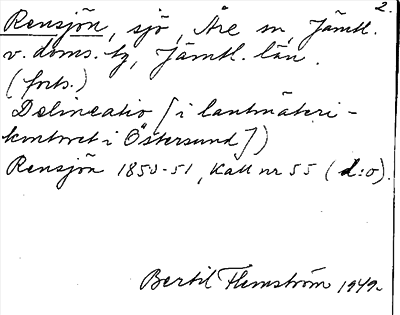 2.
Rensjön, sjö, Åre sn, Jämtl.
v. doms. tg, Jämtl. län.
(forts.)
Delineatio [i lantmäteri-
kontoret i Östersund])
Rensjön 1850-51, Kall nr 55 (d:o).
Bertil Flemström 1949.